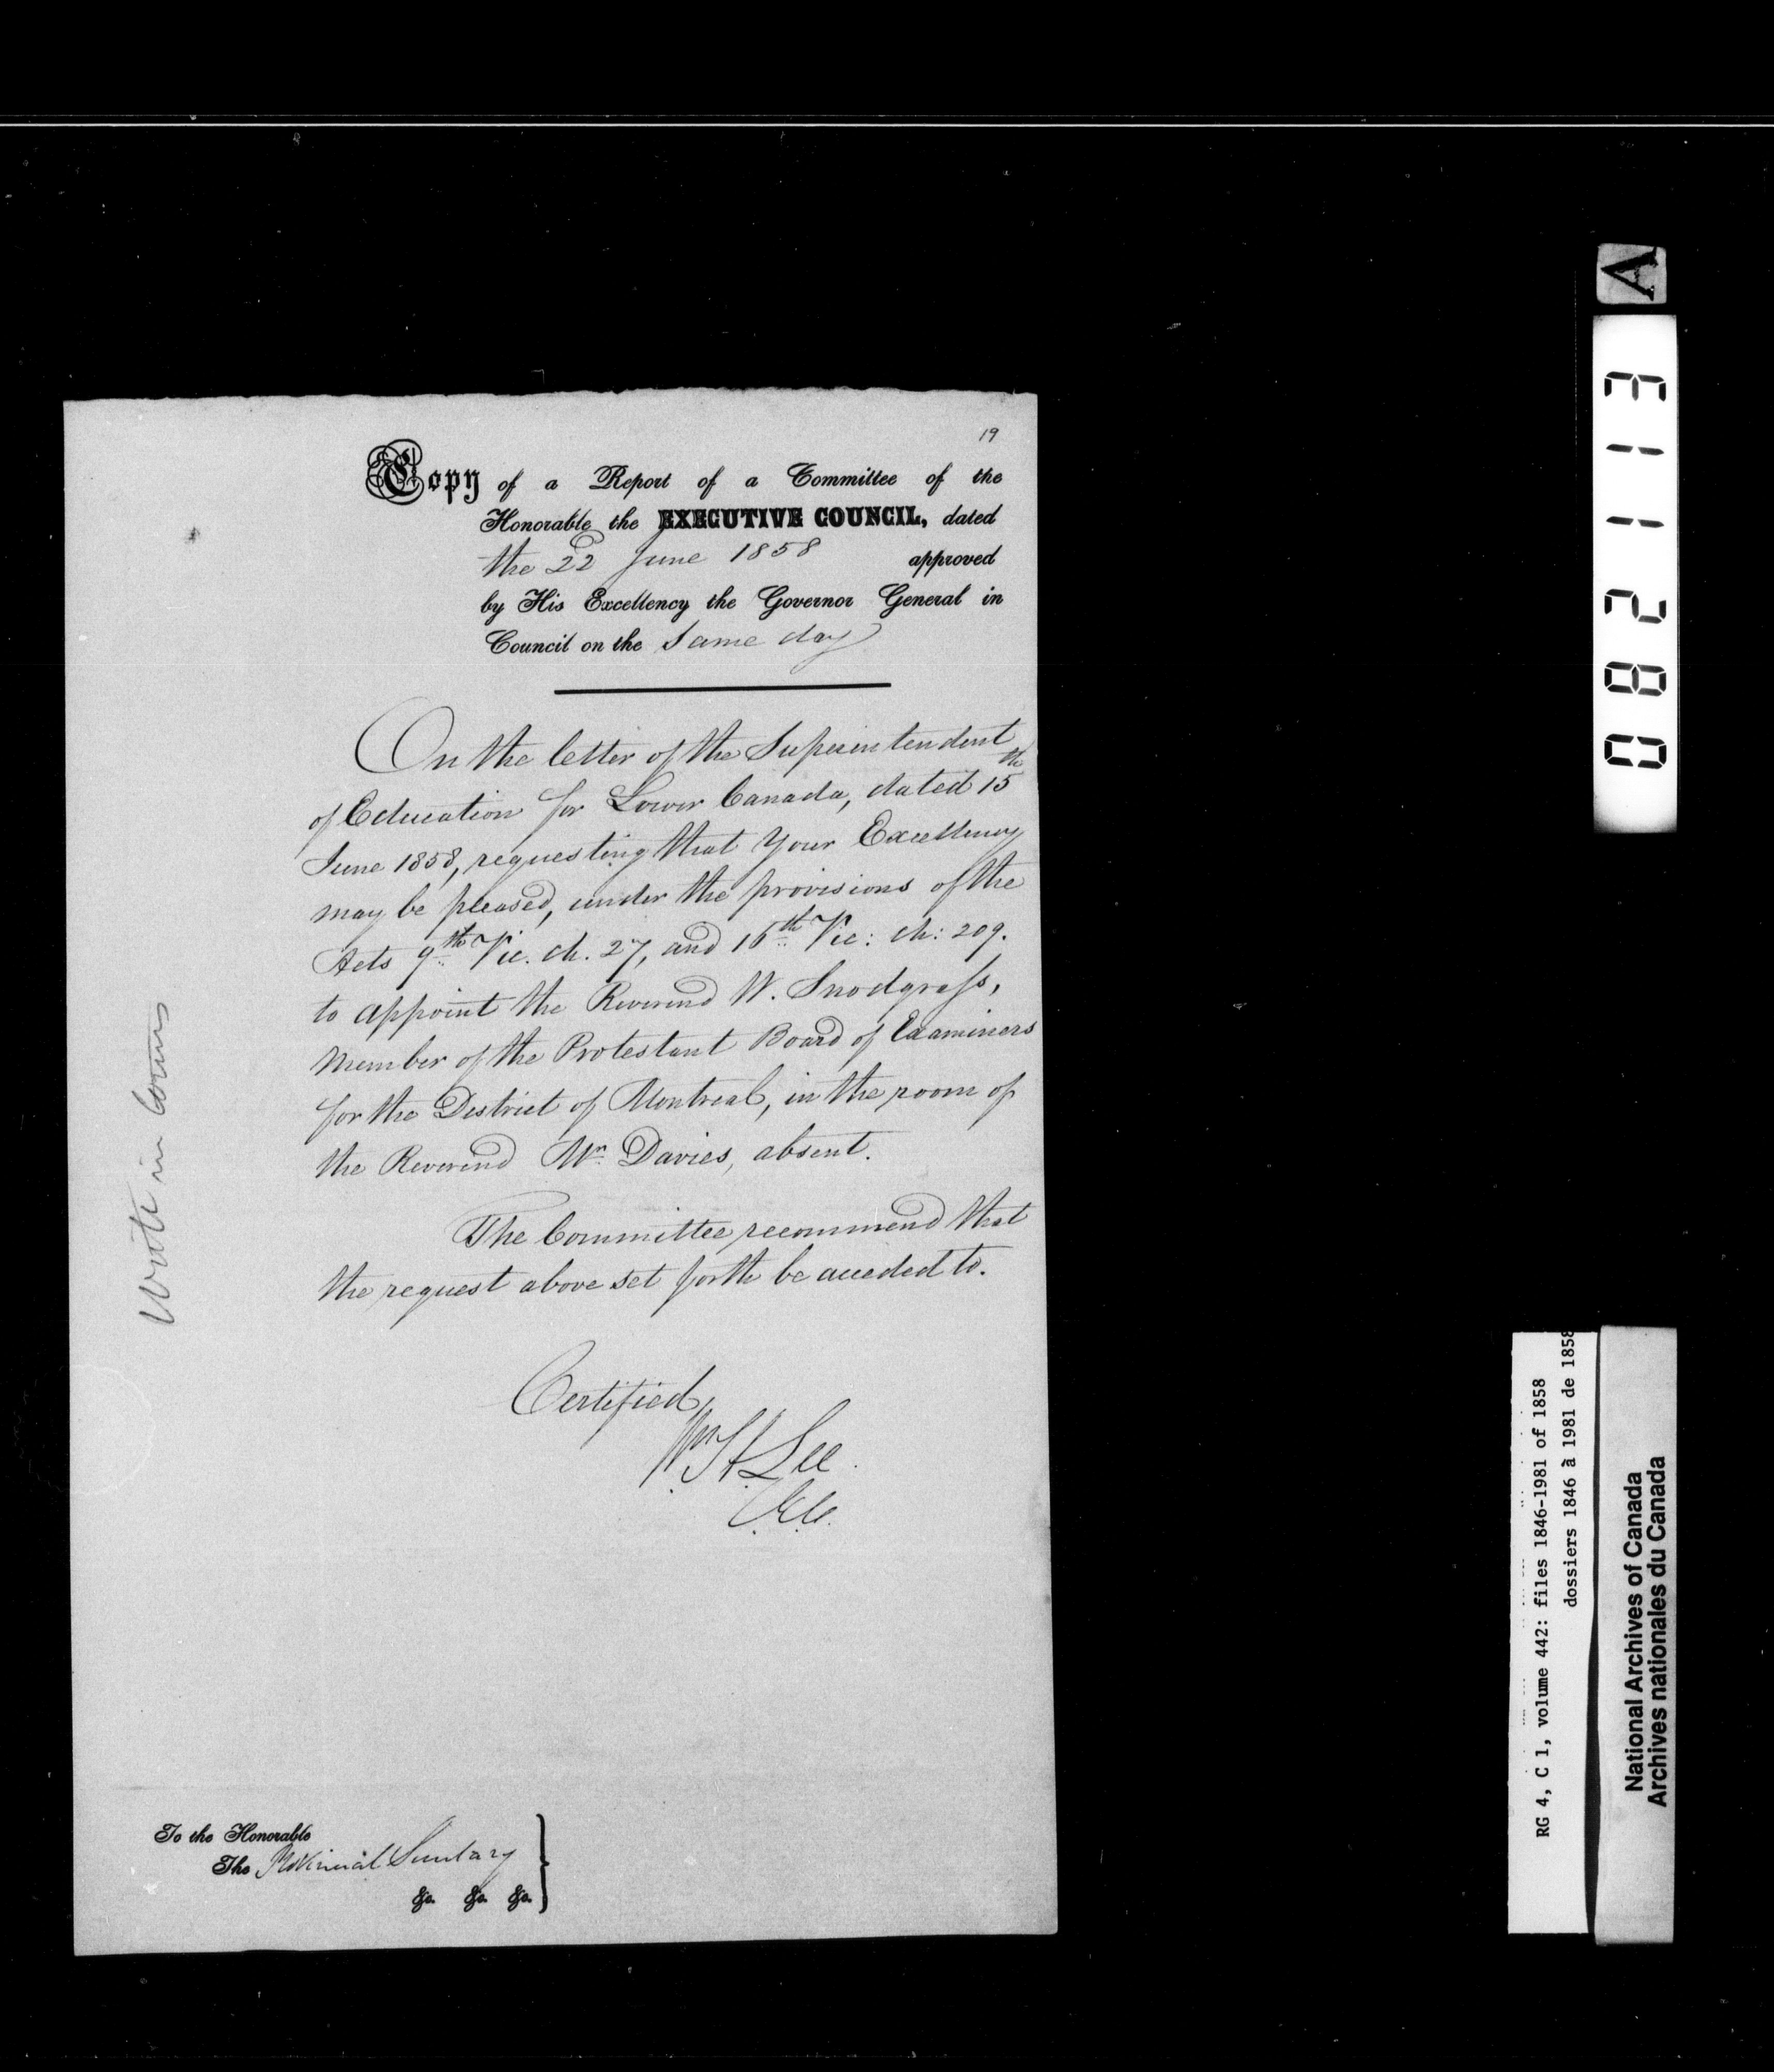 19
Copy of a Report of a Committee of the
Honorable the EXECUTIVE COUNCIL, dated
the 22 June 1858 approved
by His Excellency the Governor General in
Council on the same day
On the letter of the Superintendent
of Education for Lower Canada, dated 15th
June 1858, requesting that Your Excellency
may be pleased, under the provisions of the
Acts 9th Vic. ch. 27, and 16th Vic: ch: 209.
to appoint the Reverend W. Snodgrass,
Member of the Protestant Board of Examiners
for the District of Montreal, in the room of
the Reverend Mr. Davies, absent.
The Committee recommend that
the request above set forth be acceded to.
Certified,
Wm H. Lee.
C.E.C.
Wrote in
To the Honorable
The Provincial Secretary
&c. &c. &c.
A
0 8 2 1 1 3
RG 4, C 1, volume 442: files 1846-1981 of 1858
dossiers 1846 à 1981 de 1858
National Archives of Canada
Archives nationales du Canada